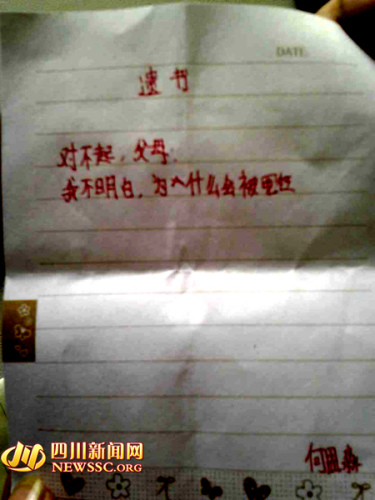 DATE:
遗书
对不起，父母。
我不明白，为什么会被冤枉
何思森
四川新闻网
NEWSSC.ORG